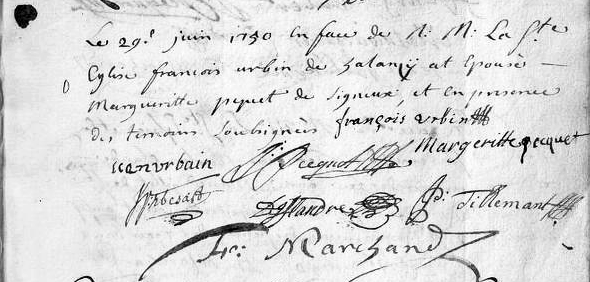 Le 29.e juin 1750 en face de N: M: La Ste
Eglise francois urbin de halanzÿ at Epousé —
Margueritte pequet de signeux, et en presence
des temoins soubsignés françois urbin
Margeritte pecquet
ieanvrbain J: Pecquet
Deflandre J: Tillemant
Fr: Marchand